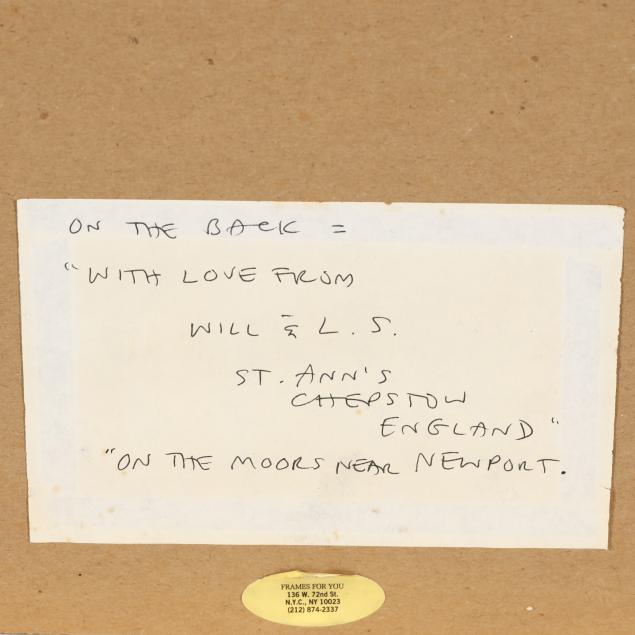 ON THE BACK =
"WITH LOVE FROM
WILL & L. S.
ST. ANN'S
CHEPSTOW
ENGLAND"
"ON THE MOORS NEAR NEWPORT.
FRAMES FOR YOU
136 W. 72nd St.
N.Y.C., NY 10023
(212) 874-2337